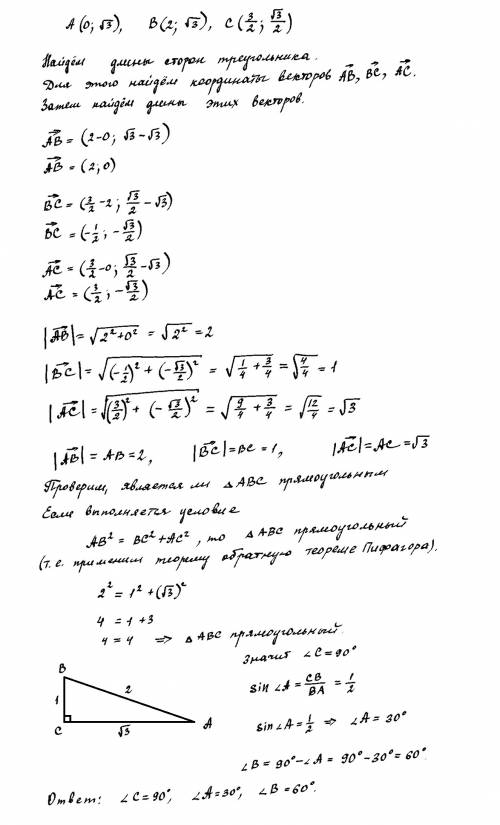 A (0; √3), B (2; √3), C (3/2; √3/2)
Найдём длины сторон треугольника.
Для этого найдём координаты векторов AB⃗, BC⃗, AC⃗.
Затем найдём длины этих векторов.
AB⃗ = (2-0; √3-√3)
AB⃗ = (2; 0)
BC⃗ = (3/2 -2; √3/2 - √3)
BC⃗ = (-1/2; -√3/2)
AC⃗ = (3/2 -0; √3/2 -√3)
AC⃗ = (3/2; -√3/2)
|AB⃗| = √(2²+0²) = √(2²) = 2
|BC⃗| = √((-1/2)² + (-√3/2)²) = √(1/4 + 3/4) = √(4/4) = 1
|AC⃗| = √((3/2)² + (-√3/2)²) = √(9/4 + 3/4) = √(12/4) = √3
|AB⃗| = AB = 2, |BC⃗| = BC = 1, |AC⃗| = AC = √3
Проверим, является ли △ABC прямоугольным
Если выполняется условие
AB² = BC² + AC², то △ABC прямоугольный
(т.е. применим теорему обратную теореме Пифагора).
2² = 1² + (√3)²
4 = 1 + 3
4 = 4 ⇒ △ABC прямоугольный.
Значит ∠C = 90°
sin∠A = CB/BA = 1/2
sin∠A = 1/2 ⇒ ∠A = 30°
∠B = 90° - ∠A = 90° - 30° = 60°
B
1
2
C
√3
A
Ответ: ∠C = 90°, ∠A = 30°, ∠B = 60°.